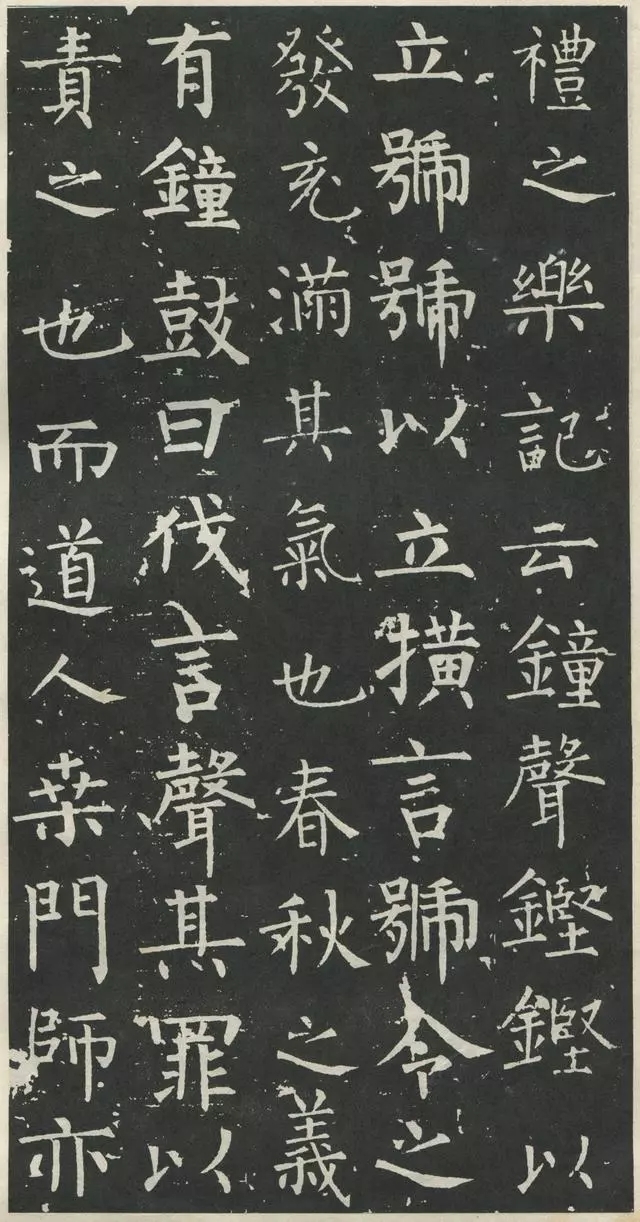 禮之樂記云鐘聲鏗鏗以
立號號以立撗言號令之
發充滿其氣也春秋之義
有鐘鼓曰伐言聲其罪以
責之也而道人桒門師亦